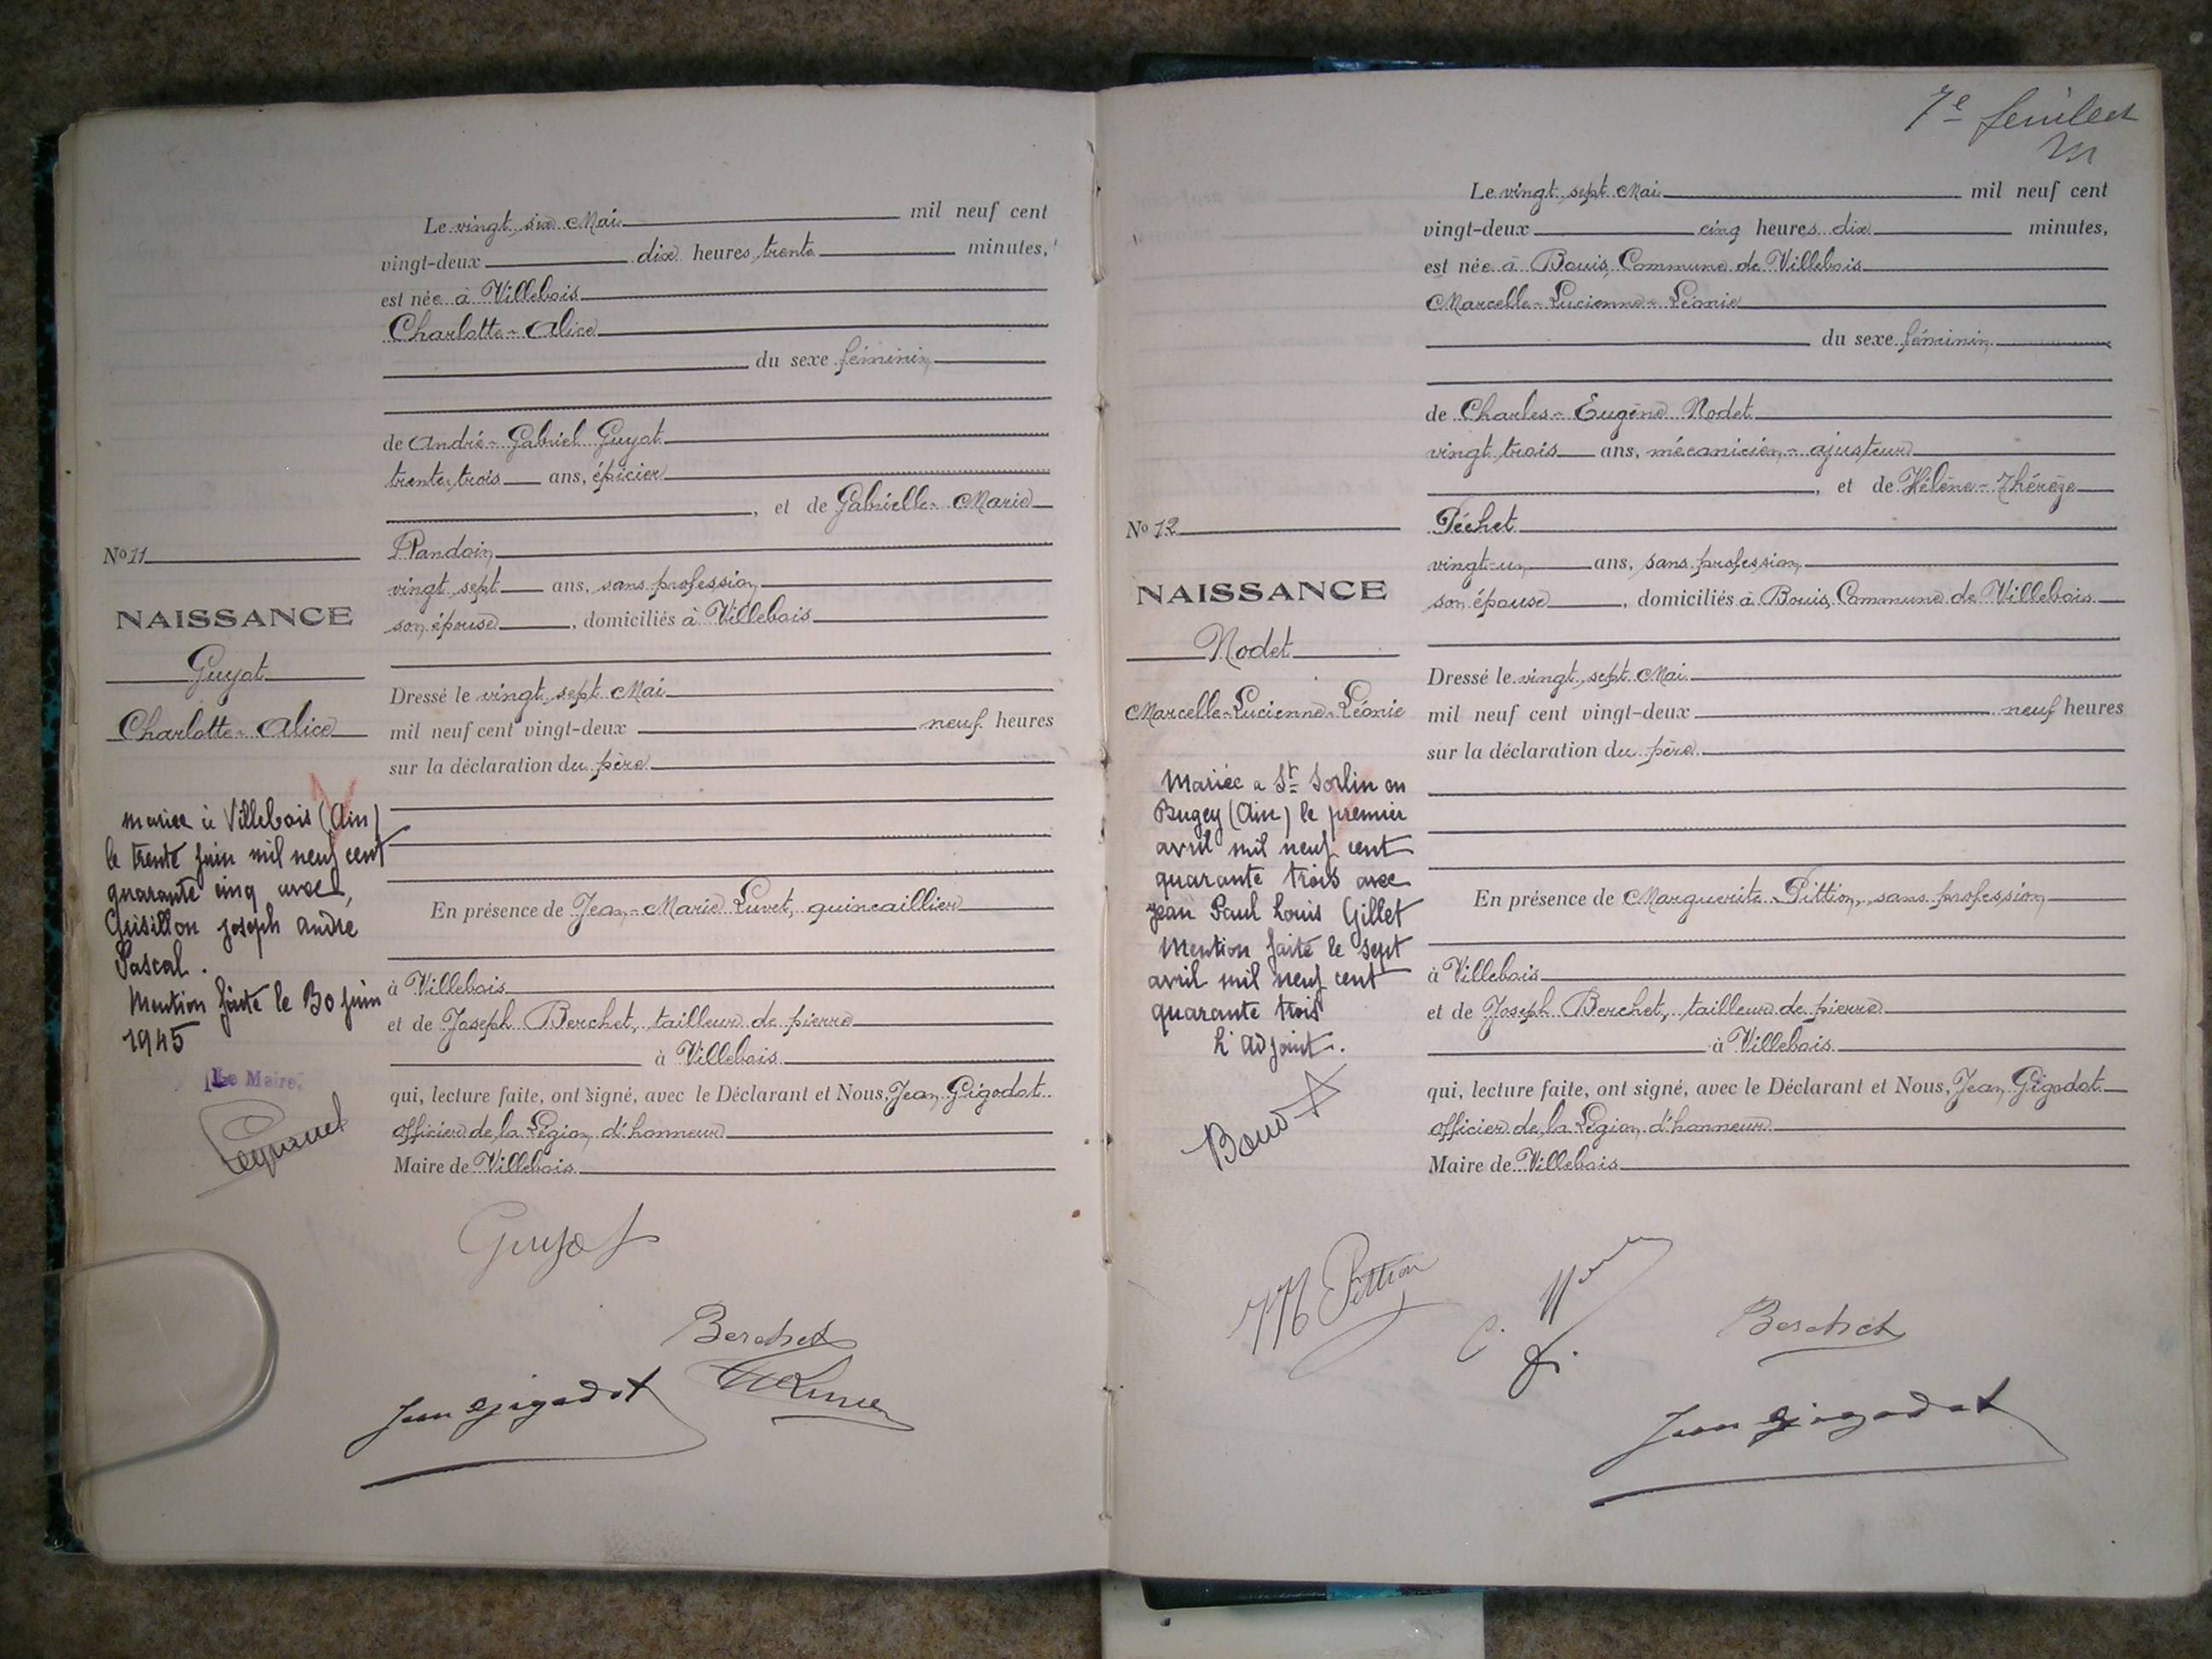 Le vingt six Mai mil neuf cent
vingt-deux dix heures trente minutes,
est née à Villebois
Charlotte-Alice
du sexe féminin
de André-Gabriel Guyot
trente trois ans, épicier
, et de Gabrielle-Marie
Nº 11
NAISSANCE
Guyot
Charlotte-Alice
mariée à Villebois (Ain)
le trente juin mil neuf cent
quarante cinq avec,
Grisillon joseph andre
Pascal.
Mention faite le 30 juin
1945
Le Maire,
vingt sept ans, sans profession
son épouse, domiciliés à Villebois
Dressé le vingt sept Mai
mil neuf cent vingt-deux neuf heures
sur la déclaration du père
En présence de Jean-Marie Luvet, quincaillier
à Villebois
et de Joseph Berchet, tailleur de pierre
à Villebois
qui, lecture faite, ont signé, avec le Déclarant et Nous, Jean Gigodot
officier de la Légion d'honneur
Maire de Villebois
Guyot
Berchet
Jean Gigodot
7e feuillet
Le vingt sept Mai mil neuf cent
vingt-deux cinq heures dix minutes,
est née à Bouis, Commune de Villebois
Marcelle-Lucienne-Léonie
du sexe féminin
de Charles-Eugène Nodet
vingt trois ans, mécanicien-ajusteur
, et de Hélène-Thérèze
Nº 12
NAISSANCE
Nodet
Marcelle-Lucienne-Léonie
Mariée a St Sorlin en
Bugey (Ain) le premier
avril mil neuf cent
quarante trois avec
Jean Paul Louis Gillet
Mention faite le sept
avril mil neuf cent
quarante trois
L'adjoint.
Péchet
vingt-un ans, sans profession
son épouse, domiciliés à Bouis, Commune de Villebois
Dressé le vingt sept Mai
mil neuf cent vingt-deux neuf heures
sur la déclaration du père
En présence de Marguerite Pittion, sans profession
à Villebois
et de Joseph Berchet, tailleur de pierre
à Villebois
qui, lecture faite, ont signé, avec le Déclarant et Nous, Jean Gigodot
officier de la Légion d'honneur
Maire de Villebois
M Pittion
Berchet
Jean Gigodot